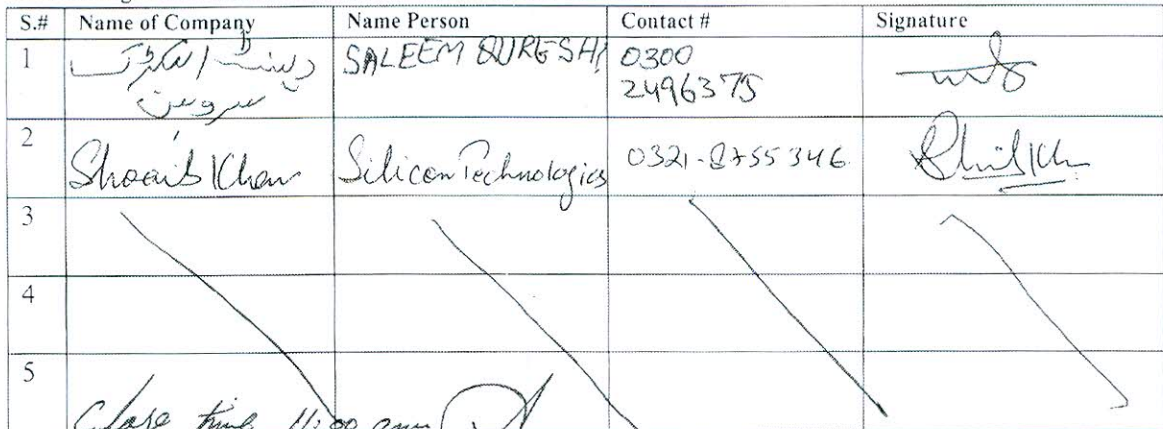 S.# Name of Company Name Person Contact # Signature
1 SALEEM QURESHI 0300
سروس 2496375
2 Shoaib Khan Silicon Technologies 0321-8755346
3
4
5
Close time 11:00 am